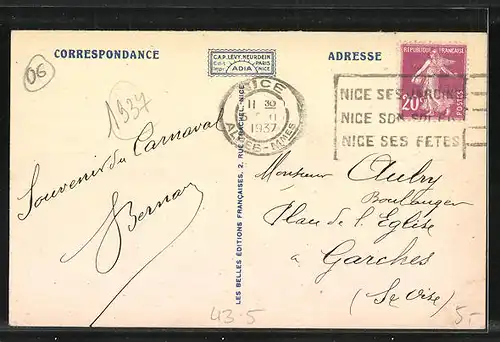 06
CORRESPONDANCE
C.A.P. LEVY, NEURDEIN
PARIS
ADIA
NICE
ADRESSE
1937
NICE
11 30
1937
ALPES-MMES
NICE SES JARDINS
NICE SON SOLEIL
NICE SES FETES
REPUBLIQUE FRANÇAISE
20
POSTES
Souvenir du Carnaval
LES BELLES ÉDITIONS FRANÇAISES, 2, RUE TRACHEL, NICE
Monsieur Aubry
Boulanger
Place de l'Eglise
à
Garches
(Se Oise)
43.5
5.-